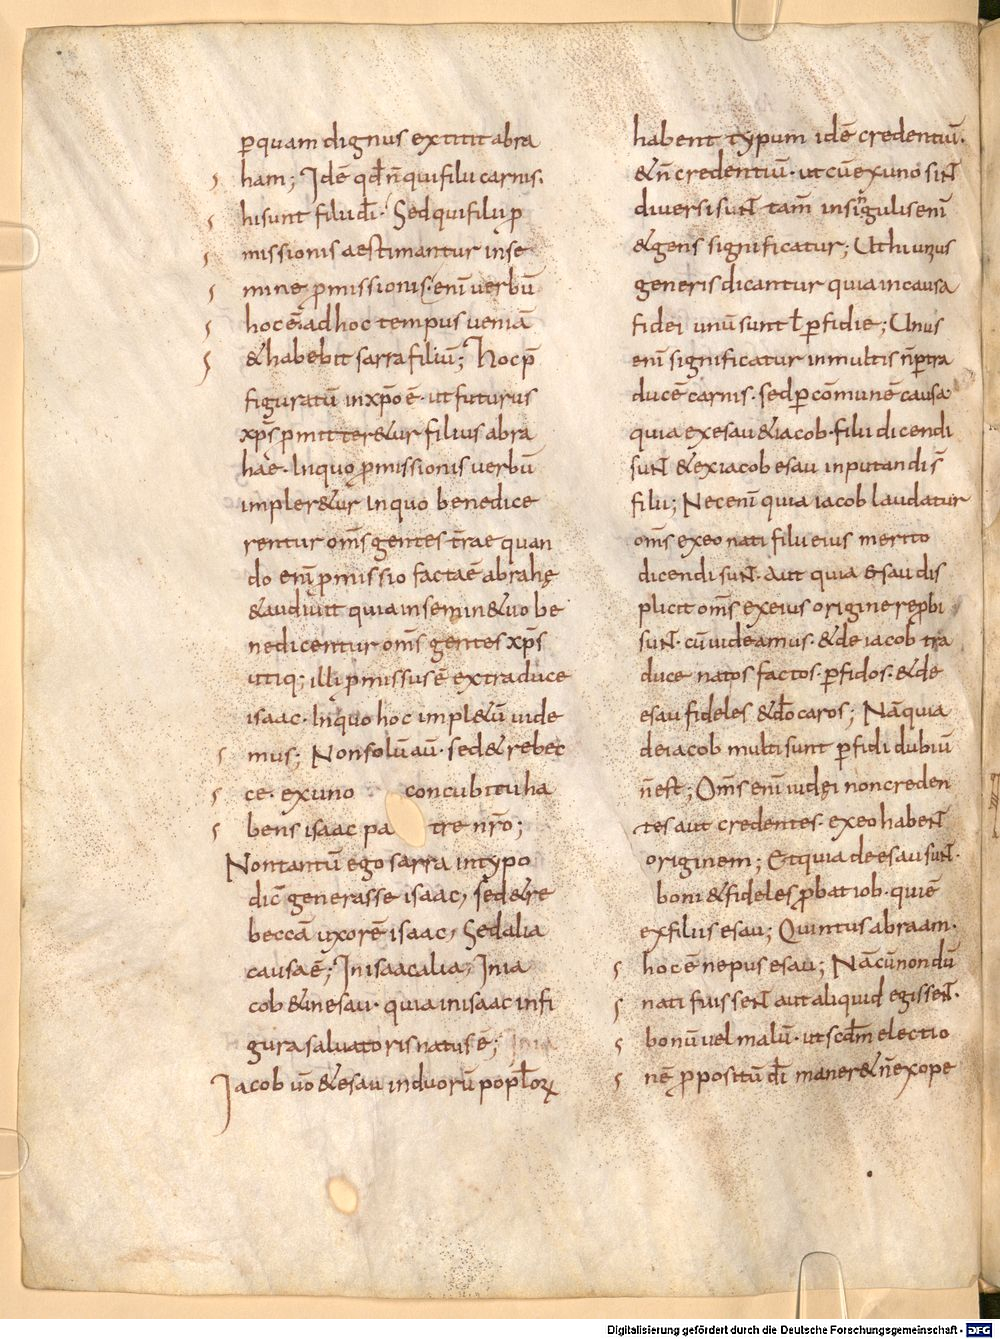 perquam dignus extitit abra
ham; Idē qđ n̄ qui filii carnis.
hi sunt filii dī. Sed qui filii p
missionis aestimantur in se
mine p̱missionis. enī verbū
hoc ē. ad hoc tempus veniā
& habebit sarra filiū; Hoc p̄
figuratū in xp̄o ē. ut futurus
xp̄s p̱mitter&ur filius abra
hae. In quo p̱missionis verbū
impler&ur in quo benedice
rentur om̄s gentes t̄rae quan
do enī p̱missio facta ē abrahę
& audivit quia in semin& uo be
nedicentur om̄s gentes xp̄s
utiq; illi p̱missus ē ex traduce
isaac. In quo hoc impl&ū uide
mus; Non solū aū. sed & rebec
ce. ex uno concubitu ha
bens isaac patre nr̄o;
Non tantū ego sarra in typo
dic̄ generasse isaac, sed & re
beccā uxorē isaac, Sed alia
causa ē; In isaac alia, In ia
cob & in esau. quia in isaac in fi
gura salvatoris natus ē;
Jacob ūo & esau in duorū popl̄oꝝ
habent typum idē credentiū.
& n̄ credentiū. ut cū ex uno siNt
diversi suNt tam̄ in singulis enī
& gens significatur; Ut hi unus
generis dicantur quia in causa
fidei unū sunt ł perfidie; Unus
enī significatur in multis n̄ per tra
ducē carnis. sed per cōmunē causā.
quia ex esau & iacob. filii dicendi
suNt & ex iacob esau inputandi s̄
filii; Nec enī quia iacob laudatur
om̄s ex eo nati filii eius merito
dicendi suNt. Aut quia Esau dis
plicit om̄s ex eius origine rep̱bi
suNt. cū uideamus. & de iacob tra
duce natos factos. perfidos. & de
esau fideles & dō caros; Nā quia
de iacob multi sunt perfidi dubiū
n̄ est; Om̄s enī iudei non creden
tes aut credentes. ex eo habeNt
originem; Et quia de esau suNt.
boni & fideles p̱bat iob. qui ē
ex filiis esau; Quintus ab raam.
hoc ē nepus esau; Nā cū nondū
nati fuisseNt aut aliquid egisseNt.
bonū vel malū. ut scdm electio
nē p̱positū dī maner& n̄ ex ope
Digitalisierung gefördert durch die Deutsche Forschungsgemeinschaft - DFG